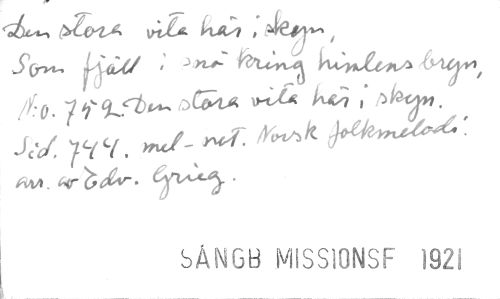 Den stora vita här i skyn,
Som fjäll i snö kring himlens bryn,
N:o. 759. Den stora vita här i skyn.
Sid. 744. mel-not. Norsk folkmelodi.
arr. av Edv. Grieg.
SÅNGB MISSIONSF 1921